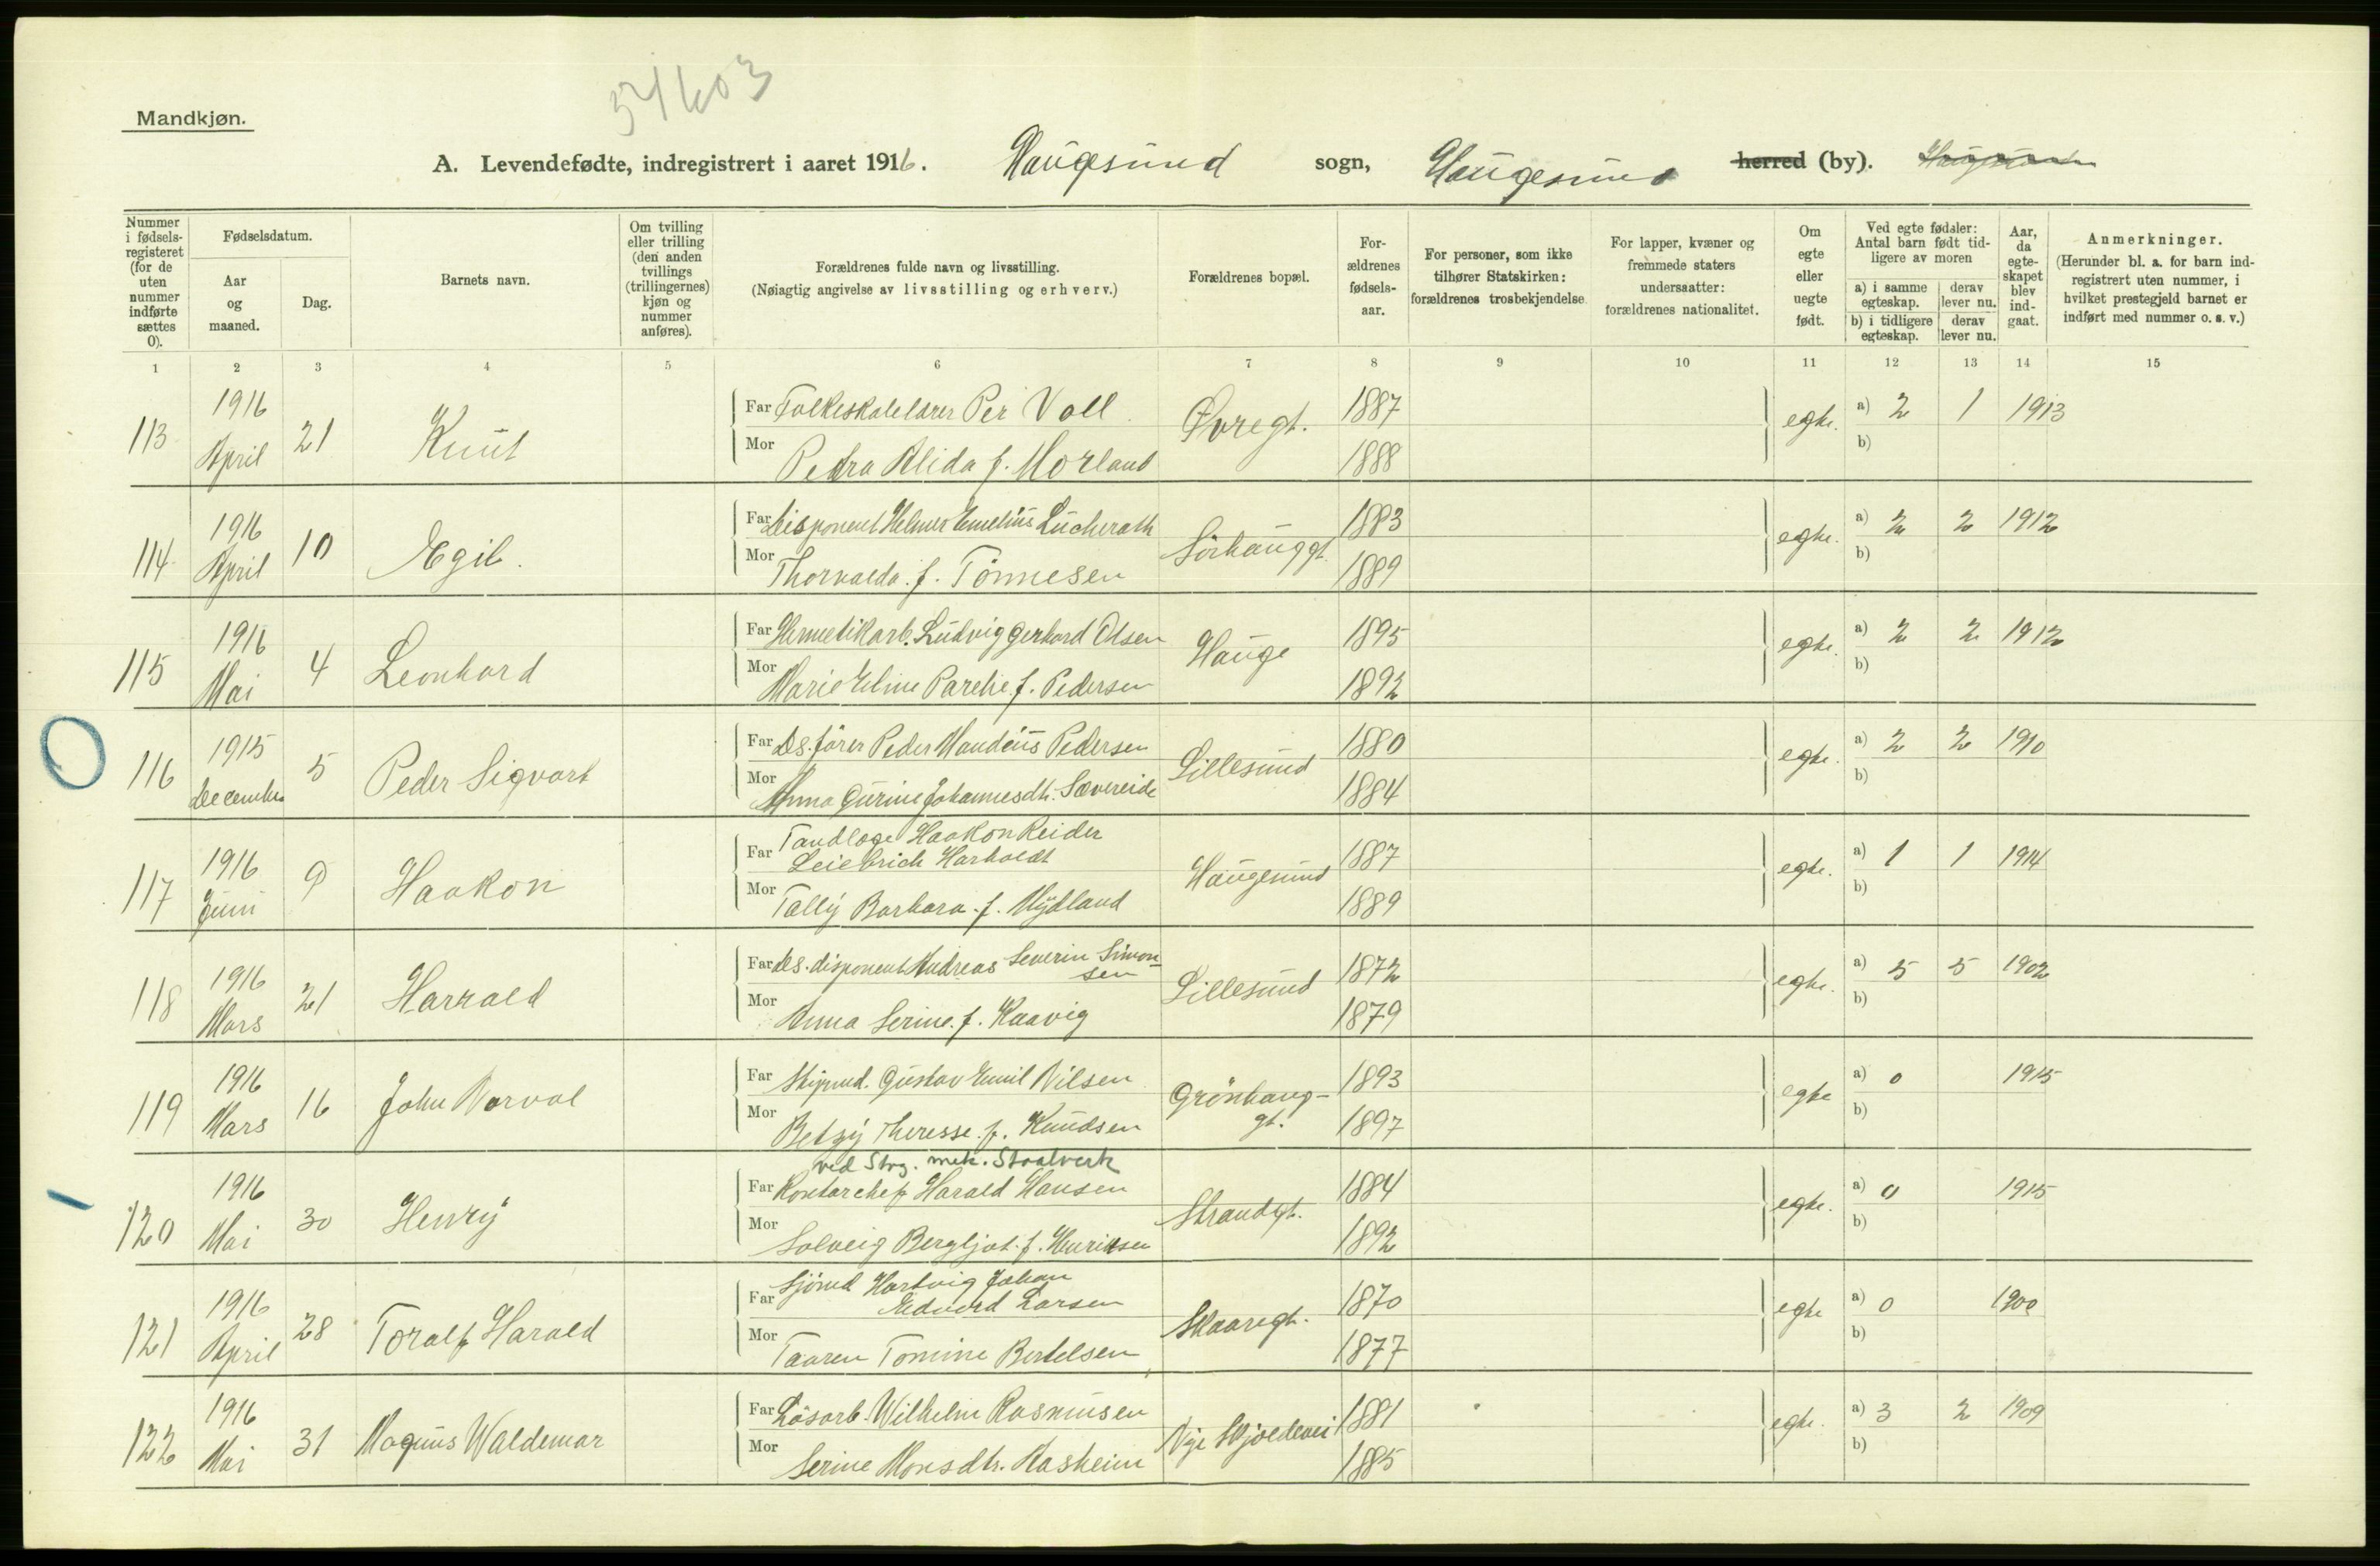 Mandkjøn.
A. Levendefødte, indregistrert i aaret 1916. Haugesund sogn, Haugesund herred (by).
Nummer i fødselsregisteret (for de uten nummer indførte sættes 0).
Fødselsdatum.
Aar og maaned.
Dag.
Barnets navn.
Om tvilling eller trilling (den anden tvillings (trillingernes) kjøn og nummer anføres).
Forældrenes fulde navn og livsstilling.
(Nøiagtig angivelse av livsstilling og erhverv.)
Forældrenes bopæl.
Forældrenes fødselsaar.
For personer, som ikke tilhører Statskirken: forældrenes trosbekjendelse
For lapper, kvæner og fremmede staters undersaatter: forældrenes nationalitet.
Om egte eller uegte født.
Ved egte fødsler: Antal barn født tidligere av moren
a) i samme egteskap. derav lever nu.
b) i tidligere egteskap. derav lever nu.
Aar, da egteskapet blev indgaat.
Anmerkninger.
(Herunder bl. a. for barn indregistrert uten nummer, i hvilket prestegjeld barnet er indført med nummer o. s. v.)
1 2 3 4 5 6 7 8 9 10 11 12 13 14 15
113 1916 April 21 Knut
Far Folkeskolelærer Per Voll Øvregt. 1887 egte. a) 2 1 1913
Mor Petra Alida f. Morland 1888 b)
114 1916 April 10 Egil.
Far Disponent Helmer Emelius Lücherath Sörhauggt. 1883 egte. a) 2 2 1912
Mor Thorvalda. f. Tönnesen 1889 b)
115 1916 Mai 4 Leonhard
Far Hermetikarb. Ludvig Gerhard Olsen Hauge 1895 egte. a) 2 2 1912
Mor Marie Eline f. Pedersen 1892 b)
116 1915 December 5 Peder Sigvart
Far Ds. förer Peder Pedersen Lillesund 1880 egte. a) 2 2 1910
Mor Anna Gurine Johannesdtr. Sævereide 1884 b)
117 1916 Juni 9 Haakon
Far Tandlæge Haakon Reider
Harboldt Haugesund 1887 egte. a) 1 1 1914
Mor Tally Barbara. f. Mydland 1889 b)
118 1916 Mars 21 Harrald
Far Ds. disponent Andreas Severin Simonsen Lillesund 1872 egte. a) 5 5 1902
Mor Anna Serine. f. Kaavig 1879 b)
119 1916 Mars 16 John Norval
Far Skipsmd. Gustav Emil Nilsen Grönhauggt. 1893 egte a) 0 1915
Mor Betzy Theresse. f. Knudsen 1897 b)
120 1916 Mai 30 Henry
ved Stvg. mek. Staalverk
Far Kontorchef Harald Hansen Strandgt. 1884 egte. a) 0 1915
Mor Solveig Bergljot. f. Henriksen 1892 b)
121 1916 April 28 Toralf Harald
Far Sjömd Hartvig Johan
Edvard Larsen Skaaregt. 1870 egte a) 0 1900
Mor Taaren Tomine Bertelsen 1877 b)
122 1916 Mai 31 Magnus Waldemar
Far Lösarb. Wilhelm Rasmusen Nye Skjoldevei 1881 egte. a) 3 2 1909
Mor Serine Monsdtr. Aasheim 1885 b)